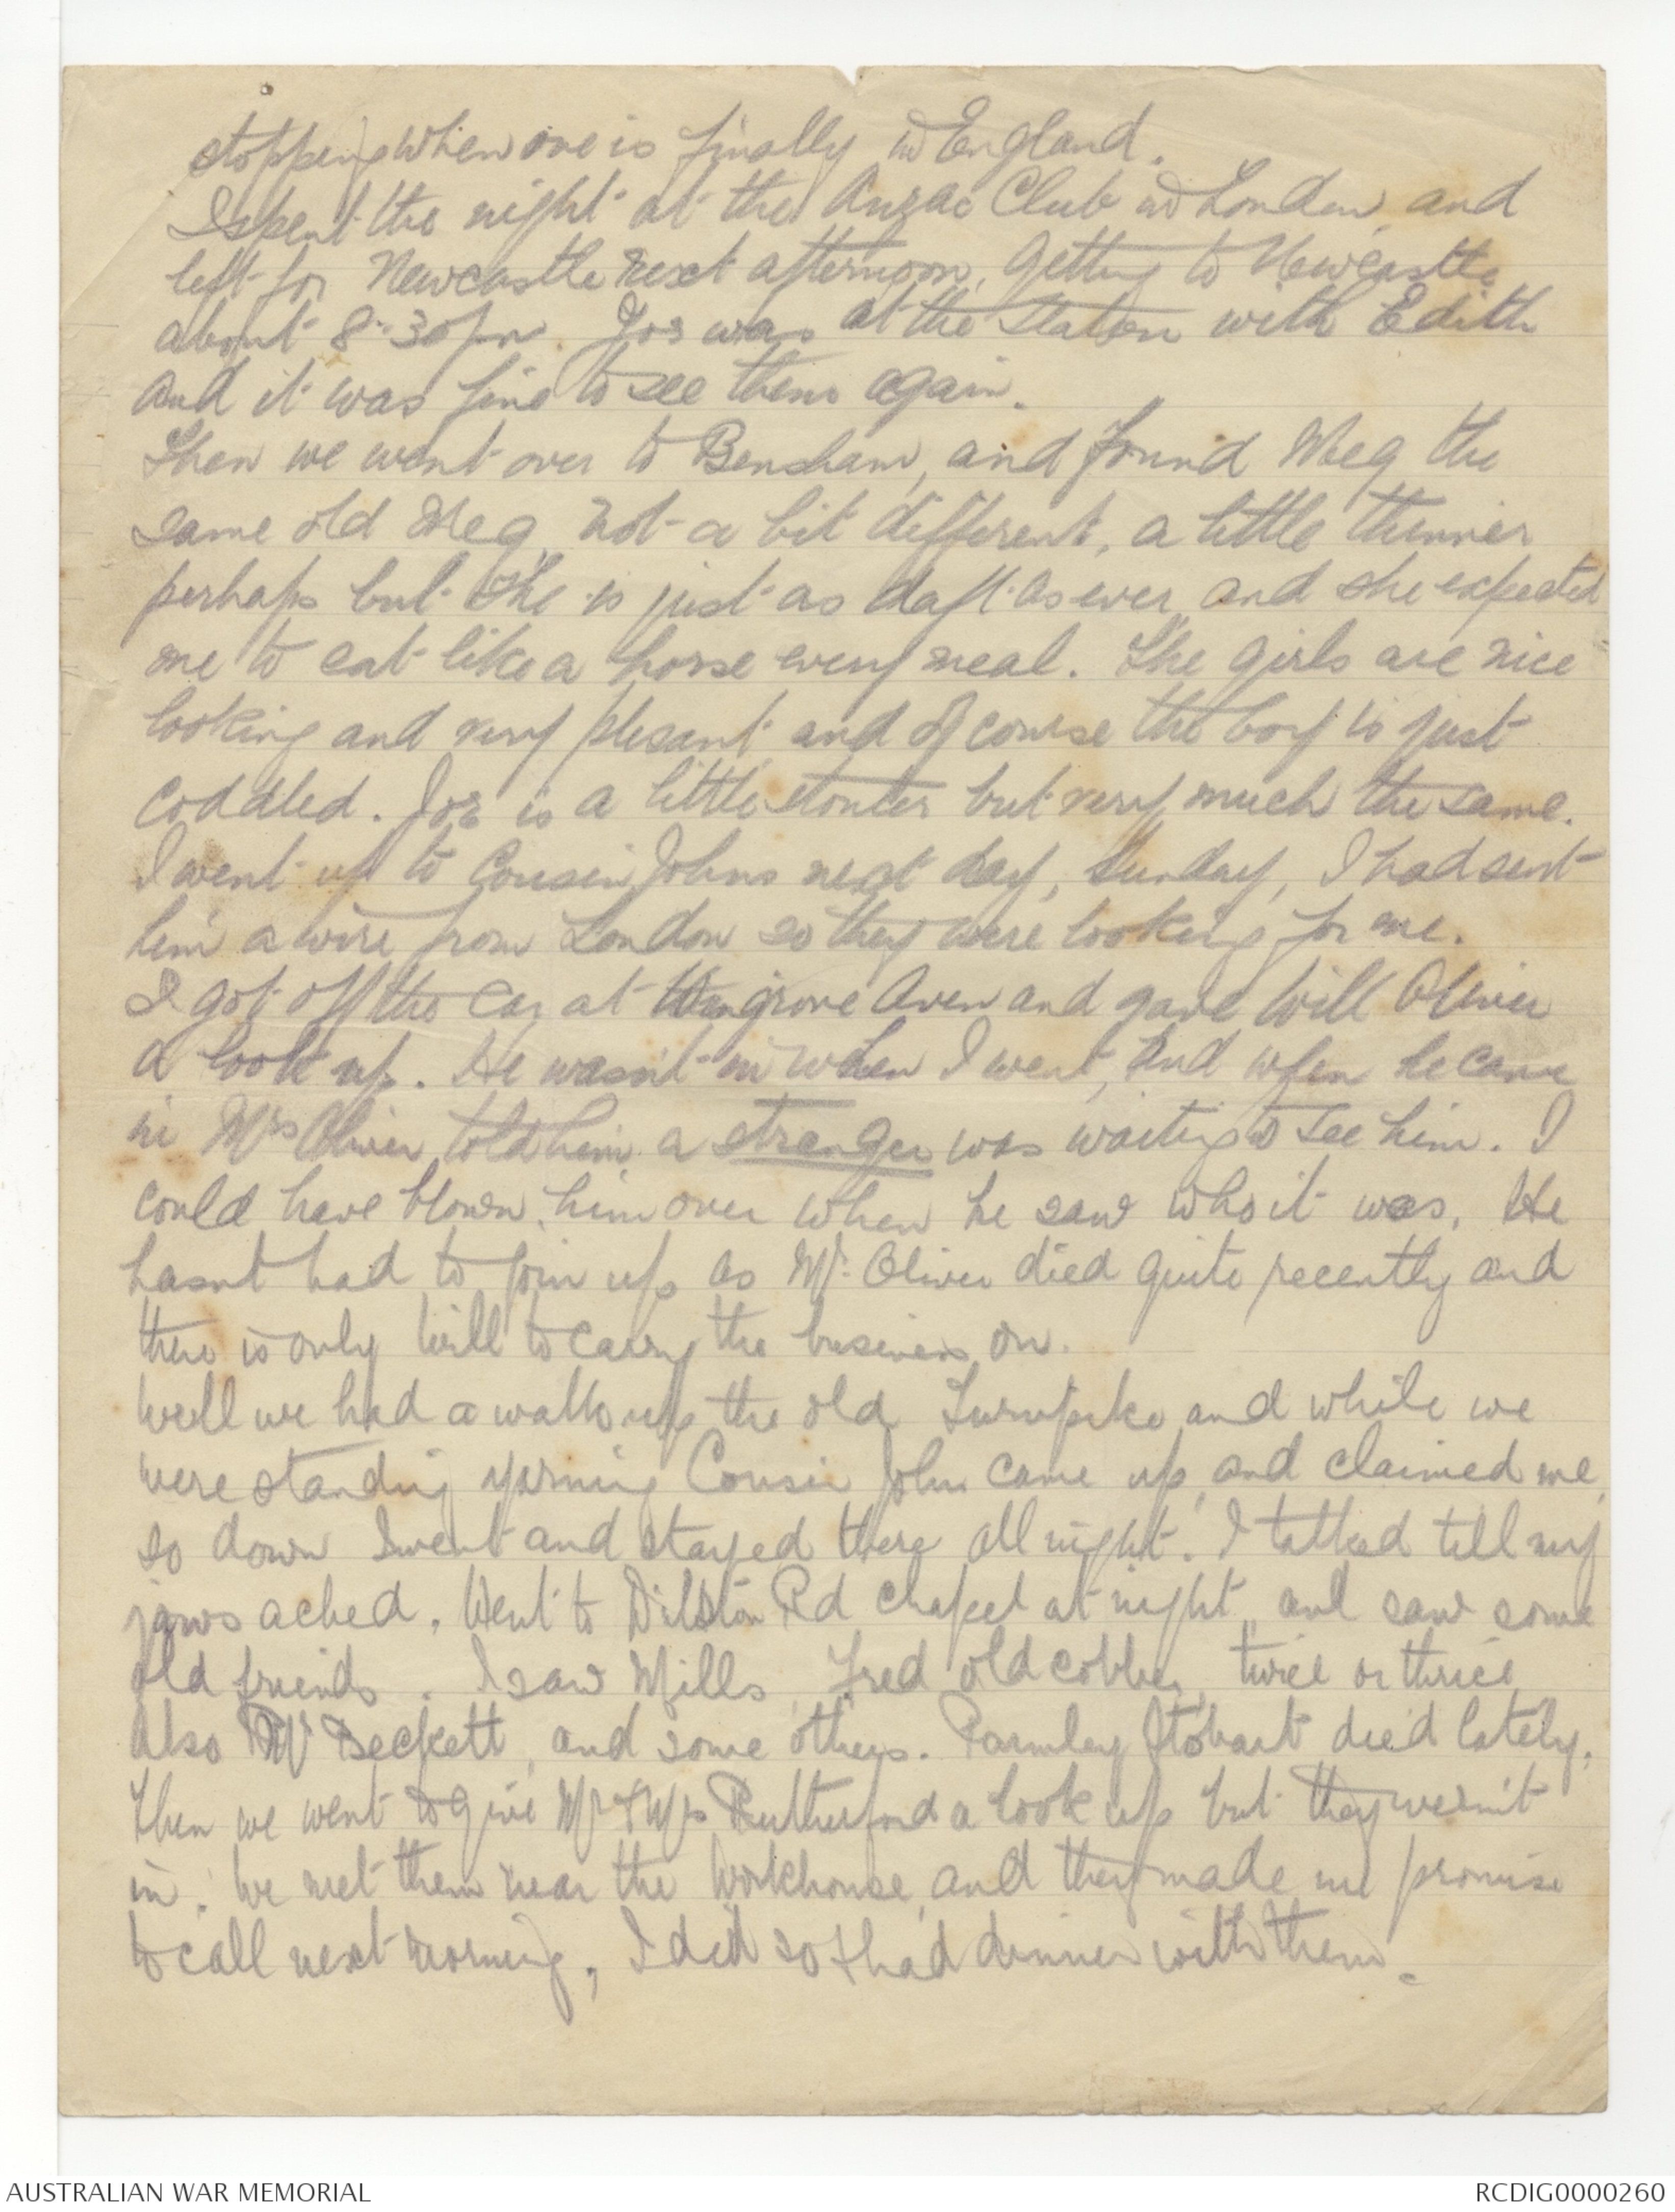 stopping when one is finally in England.
I spent the night at the Anzac Club in London, and
left for Newcastle next afternoon, getting to Newcastle
about 8.30pm. Jos was at the Station with Edith
and it was fine to see them again.
Then we went over to Bensham, and found Meg the
same old Meg, not a bit different, a little thinner
perhaps but she is just as daft as ever, and she expected
me to eat like a horse every meal. The girls are nice
looking and very plesant, and of course the boy is just
coddled. Jos is a little stouter but very much the same.
I went up to Cousin Johns next day, Sunday, I had sent
him a wire from London so they were looking for me.
I got off the car at grove Aven and gave Will Oliver
a look up. He wasn't in when I went, and when he came
in Mrs Oliver told him a stranger was waiting to see him. I
could have blown him over when he saw who it was. He
hasnt had to join up as Mr. Oliver died quite recently and
there is only Will to carry the business on.
Well we had a walk up the old Turnpike and while we
were standing yarning Cousin John came up, and claimed me,
so down I went and stayed there all night. I talked till my
jaws ached. Went to Dilston Rd chapel at night, and saw some
old friends. I saw Mills, Fred old cobber, twice or thrice,
Also Mr Beckett, and some others. Parmley Stobart died lately.
Then we went to give Mr & Mrs Rutherford a look up but they wern't
in. We met them near the Workhouse, and they made me promise
to call next morning, I did so & had dinner with them.
AUSTRALIAN WAR MEMORIAL
RCDIG0000260